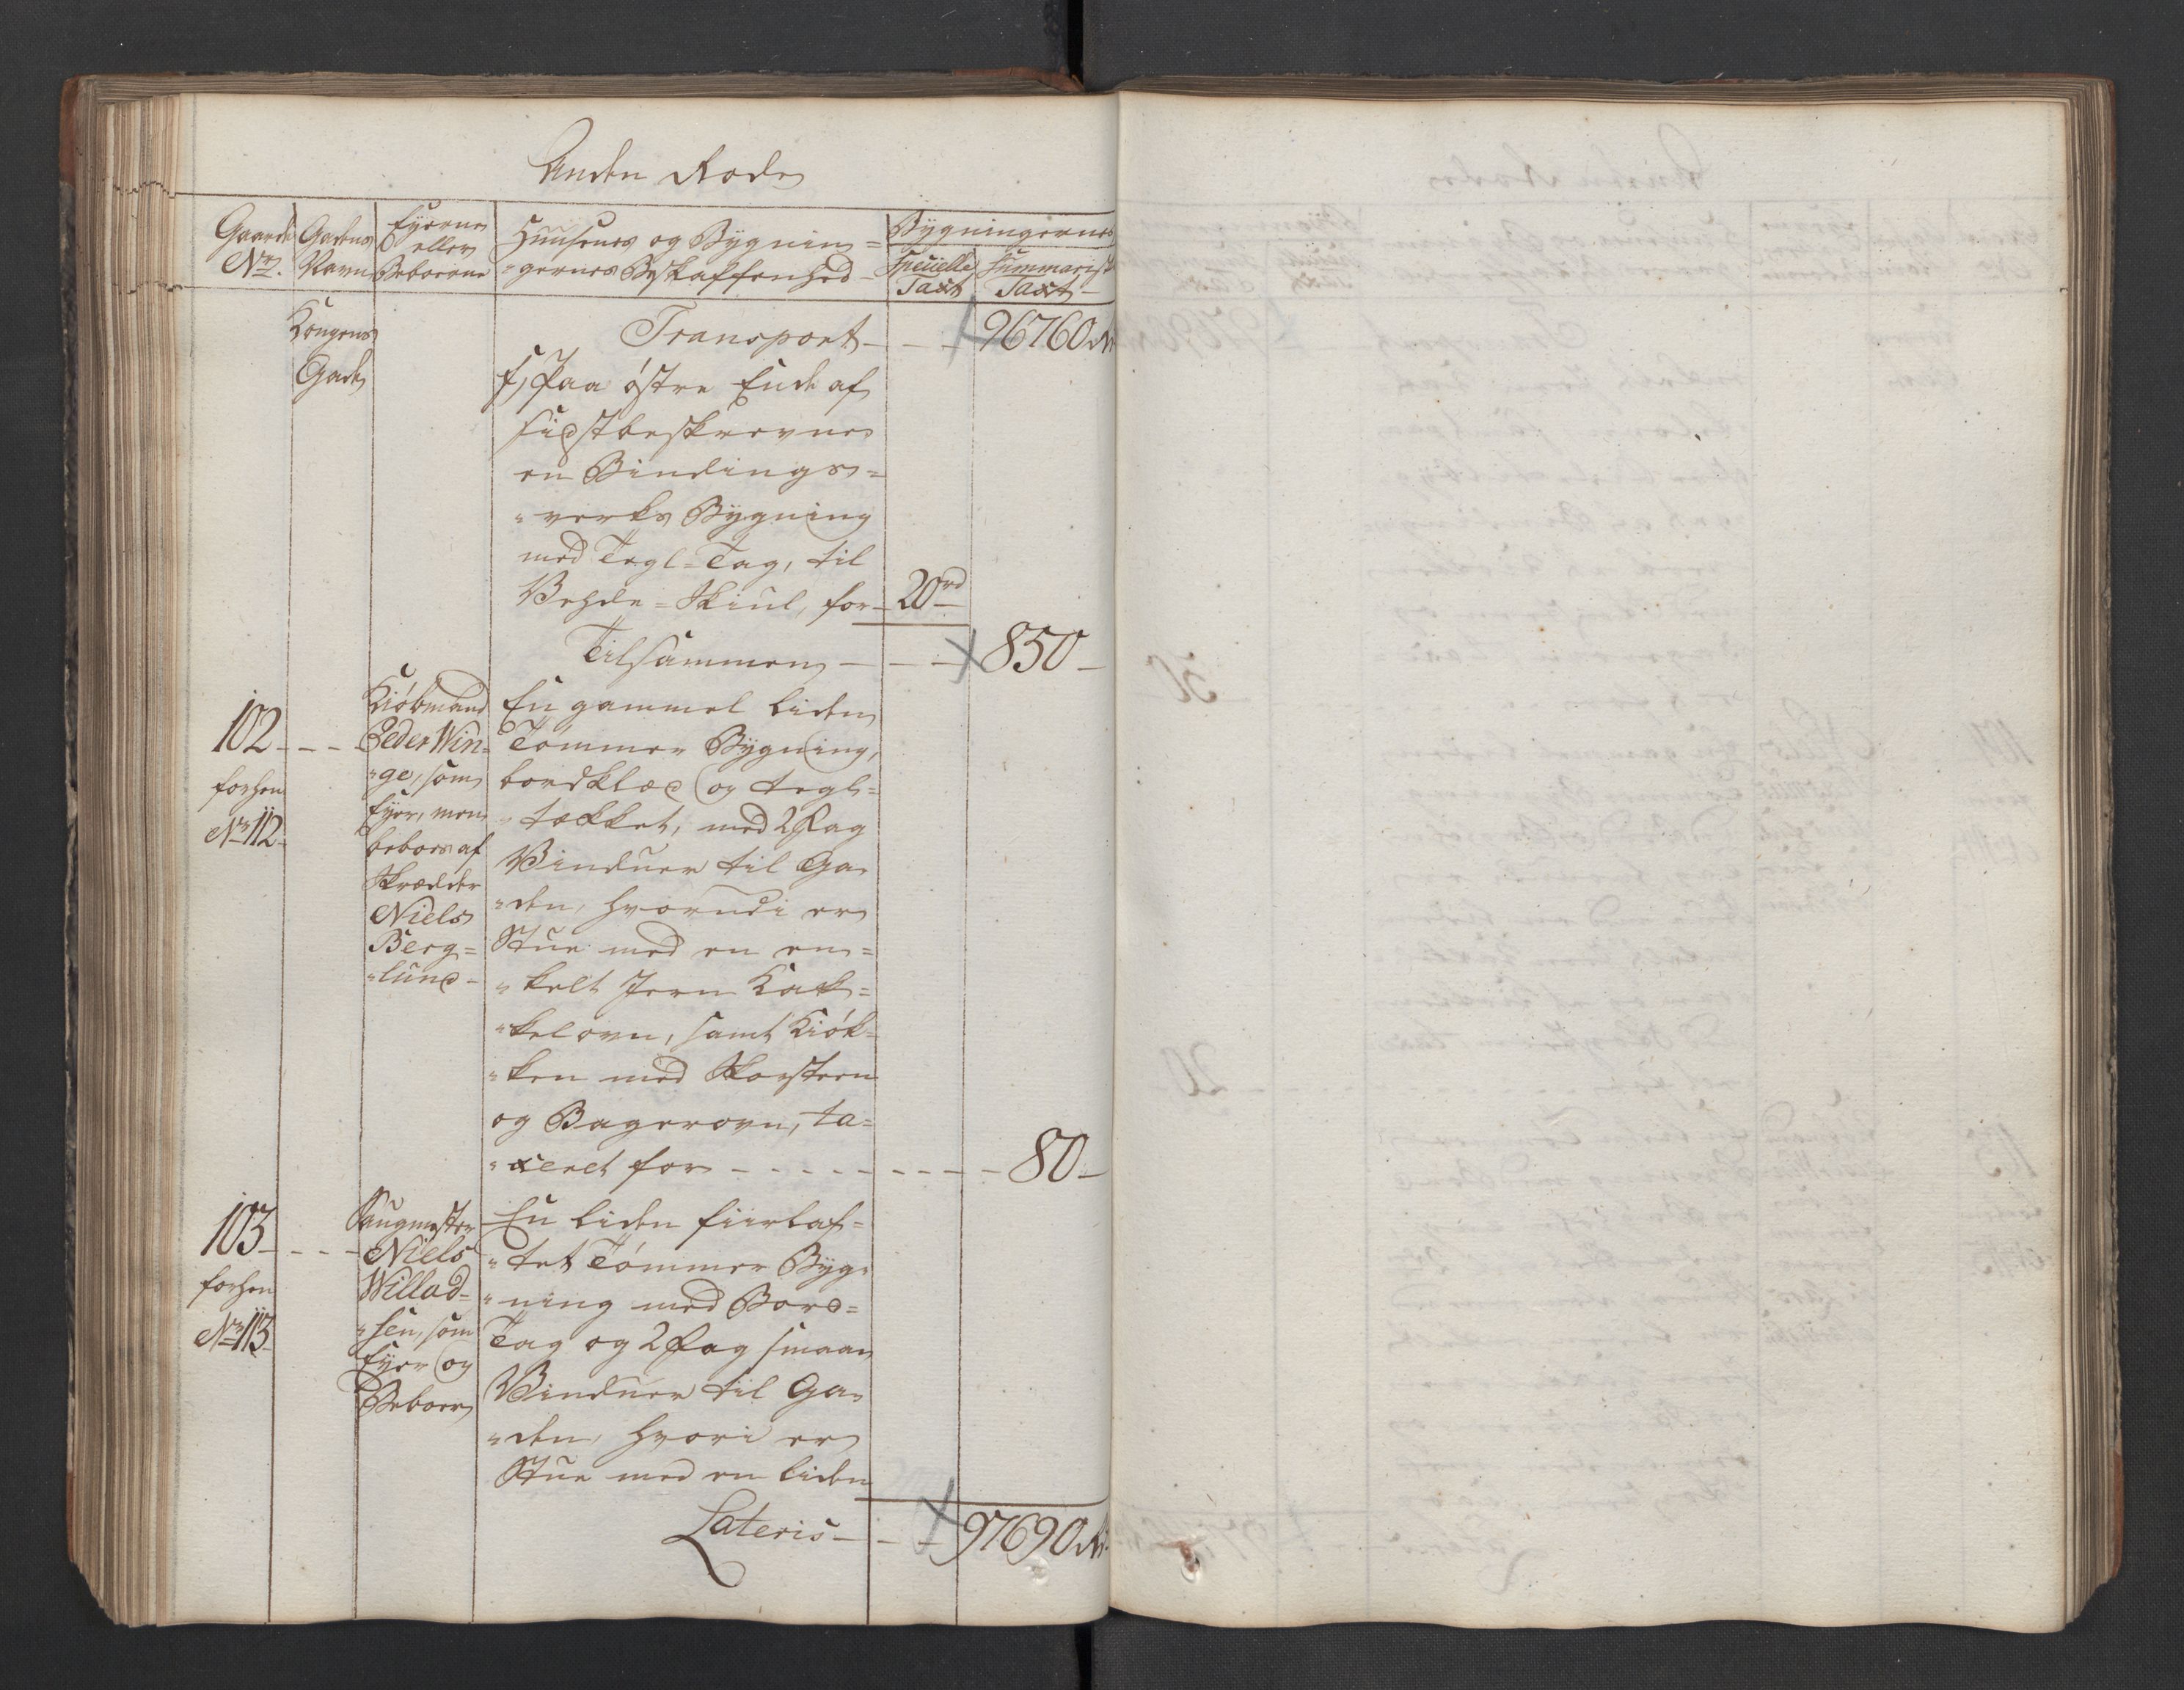 Anden Rode
Gaards No. | Gadens Navn | Eyerne eller Beboerne | Huusenes og Bygnin= "gernes Beskaffenhed | Bygningernes Specielle Taxt | Summarisk Taxt
Kongens
Gade
Transport - - - 96760 Rd
f, Paa østre Ende af
sidstbeskrevne
en Bindings=
"verks Bygning
med Tegl=Tag, til
Vehde=Skiul, for - 20 rd
Tilsammen - - - 850 -
102 - - -
forhen
No 112.
Kiøbmand
Peder Win=
"ge, som
Eyer, men
beboes af
Skrædder
Niels
Berg=
"lund -
En gammel liden
Tømmer Bygning,
bordklæd og tegl=
"tækket, med 2 Fag
Vinduer til Ga=
"den, hvorudi er
Stue med en en=
"kelt Jern Kak=
"kelovn, samt Kiøk=
"ken med Skorsteen
og Bagerovn, ta=
"xeret for - - - - - - - - - 80 -
103 - - -
forhen
No 113
Saugmester
Niels
Willad=
"sen, som
Eyer og
Beboer
En liden fiirlaf=
"tet Tømmer Byg=
"ning med Bord=
Tag og 2 Fag smaae
Vinduer til Ga=
"den, hvori er
Stue med en liden
Lateris - - - 97690 Rd